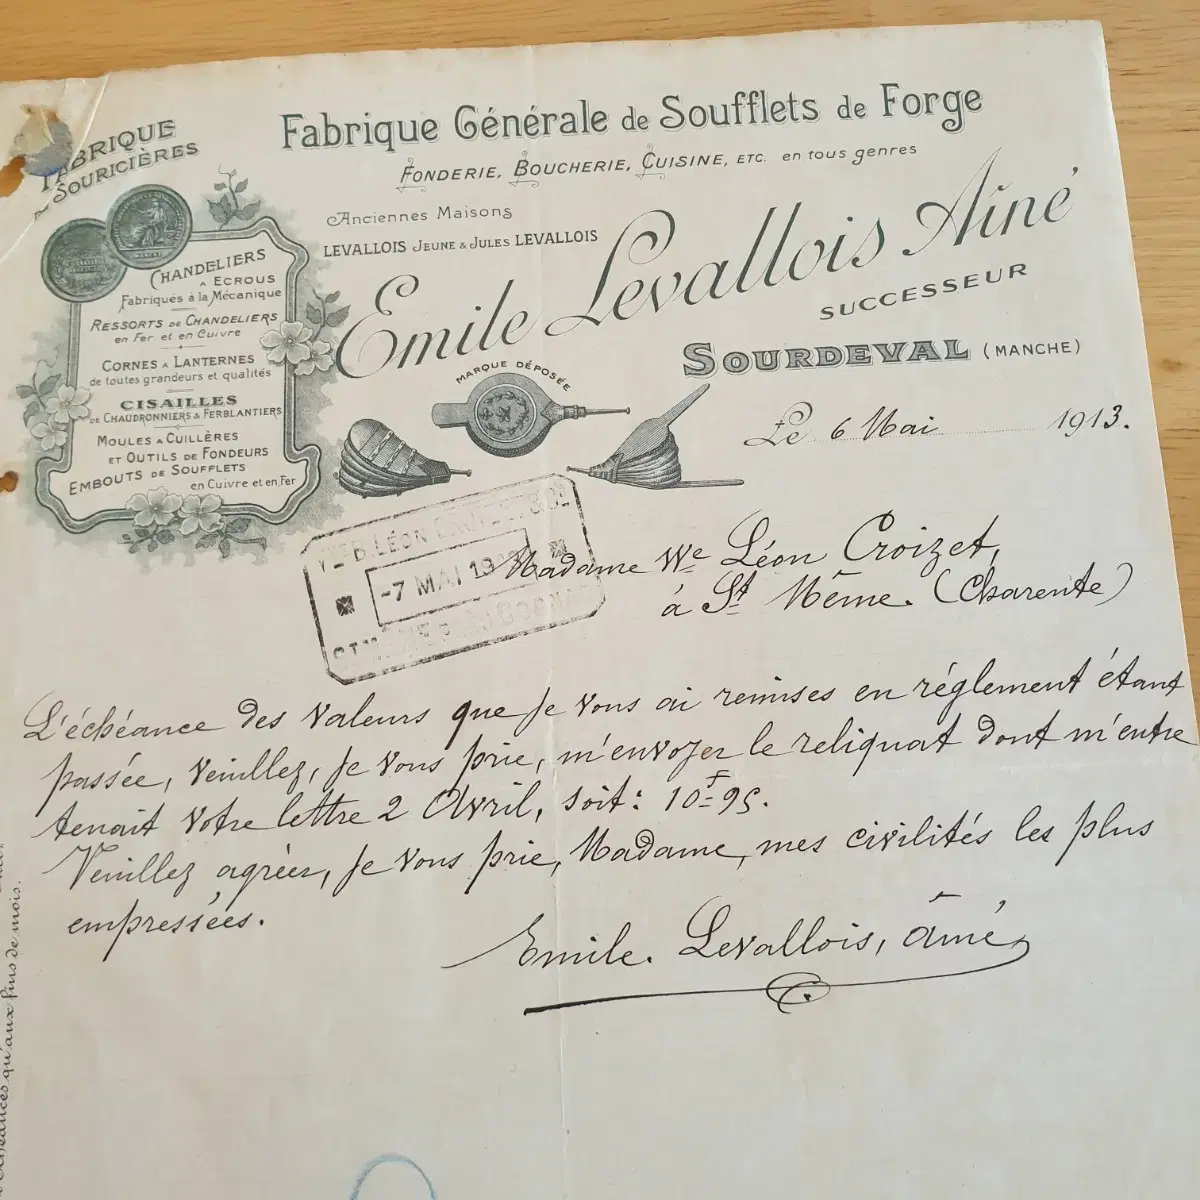 Fabrique Générale de Soufflets de Forge
Fonderie, Boucherie, Cuisine, etc. en tous genres
FABRIQUE
DE SOURICIÈRES
Anciennes Maisons
LEVALLOIS JEUNE & JULES LEVALLOIS
Emile Levallois Aîné
SUCCESSEUR
SOURDEVAL (MANCHE)
CHANDELIERS
A ECROUS
Fabriqués à la Mécanique
RESSORTS DE CHANDELIERS
en Fer et en Cuivre
CORNES A LANTERNES
de toutes grandeurs et qualités
CISAILLES
DE CHAUDRONNIERS & FERBLANTIERS
MOULES A CUILLÈRES
ET OUTILS DE FONDEURS
EMBOUTS DE SOUFFLETS
en Cuivre et en Fer
MARQUE DÉPOSÉE
Le 6 Mai 1913.
LÉON
-7 MAI 19
COGNAC
Madame Vve Léon Croizet,
à St Même. (Charente)
L'échéance des valeurs que je vous ai remises en réglement étant
passée, veuillez, je vous prie, m'envoyer le reliquat dont m'entre
tenait votre lettre 2 Avril, soit: 10F=95.
Veuillez agréer, je vous prie, Madame, mes civilités les plus
empressées.
Emile. Levallois, aîné
qu'aux fins de mois.